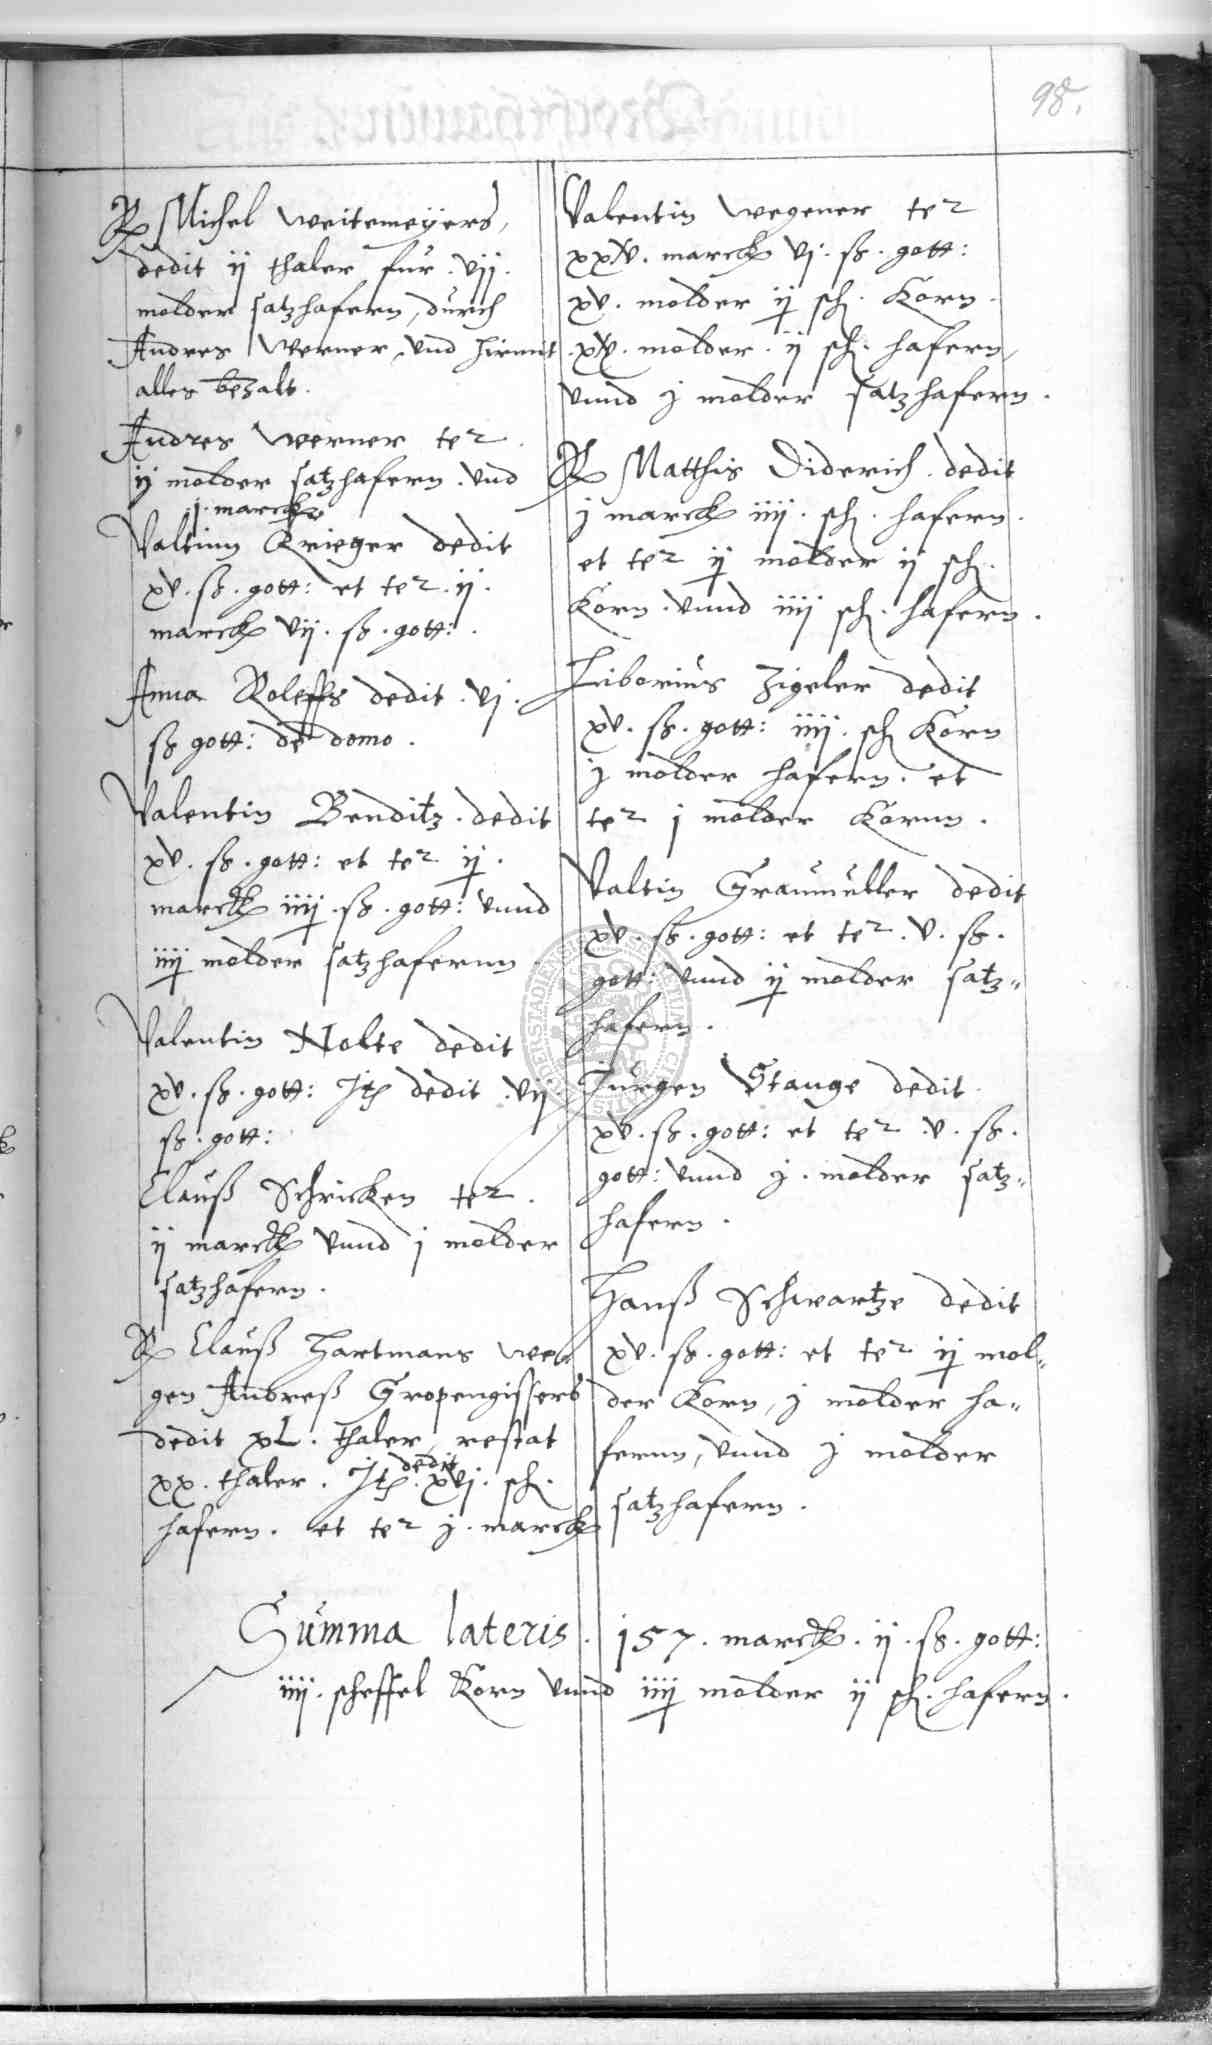 98.
R Michel Weitemeÿers,
dedit ij thaler fur . vij .
molder satzhafern, durch
Andres Werner, vnd hirmit
alles bezalt.
Andres Werner ter
ij molder satzhafern . vnd
j . marck
Valtinn Krieger dedit
xv . sß . gott: et ter . ij .
marck vij . sß . gott: .
Anna Roleffs dedit . vj .
sß gott: de domo .
Valentin Benditz . dedit
xv . sß . gott: et ter ij .
marck iiij . sß . gott: vnnd
iiij molder satzhafernn
Valentin Nolte dedit
xv . sß . gott: Jt dedit . vij
sß . gott:
Clauß Schricken ter .
ij marck vnnd j molder
satzhafern .
R Clauß Hartmans we-
gen Andreß Gropengissers
dedit xL . thaler, restat
dedit
xx . thaler . Jt . xvj . sch .
hafern . et ter j . marck
Valentin Wegener ter
xxiv . marck vj . sß . gott:
xv . molder ij sch . Korn .
. xiv . molder . ij sch . hafern,
vnnd j molder satzhafern .
R Matthis Diderich . dedit
j marck iiij . sch . hafern .
et ter ij molder ij sch .
Korn . vnnd iiij sch . hafern .
Liborius Zigeler dedit
xv . sß . gott: iiij . sch Korn
j molder hafern . et
ter j molder Kornn .
Valtin Graumuller dedit
xv . sß . gott: et ter . v . sß .
gott: vnnd ij molder satz=
hafern .
Jurgen Stange dedit
xv . sß . gott: et ter . v . sß .
gott: vnnd j . molder satz=
hafern .
Hanß Schwartze dedit
xv . sß . gott: et ter ij mol=
der Korn, j molder ha=
fernn, vnnd j molder
satzhafern .
Summa lateris . 157 . marck . ij . sß . gott:
iiij . scheffel Korn vnnd iiij molder ij sch . hafern .